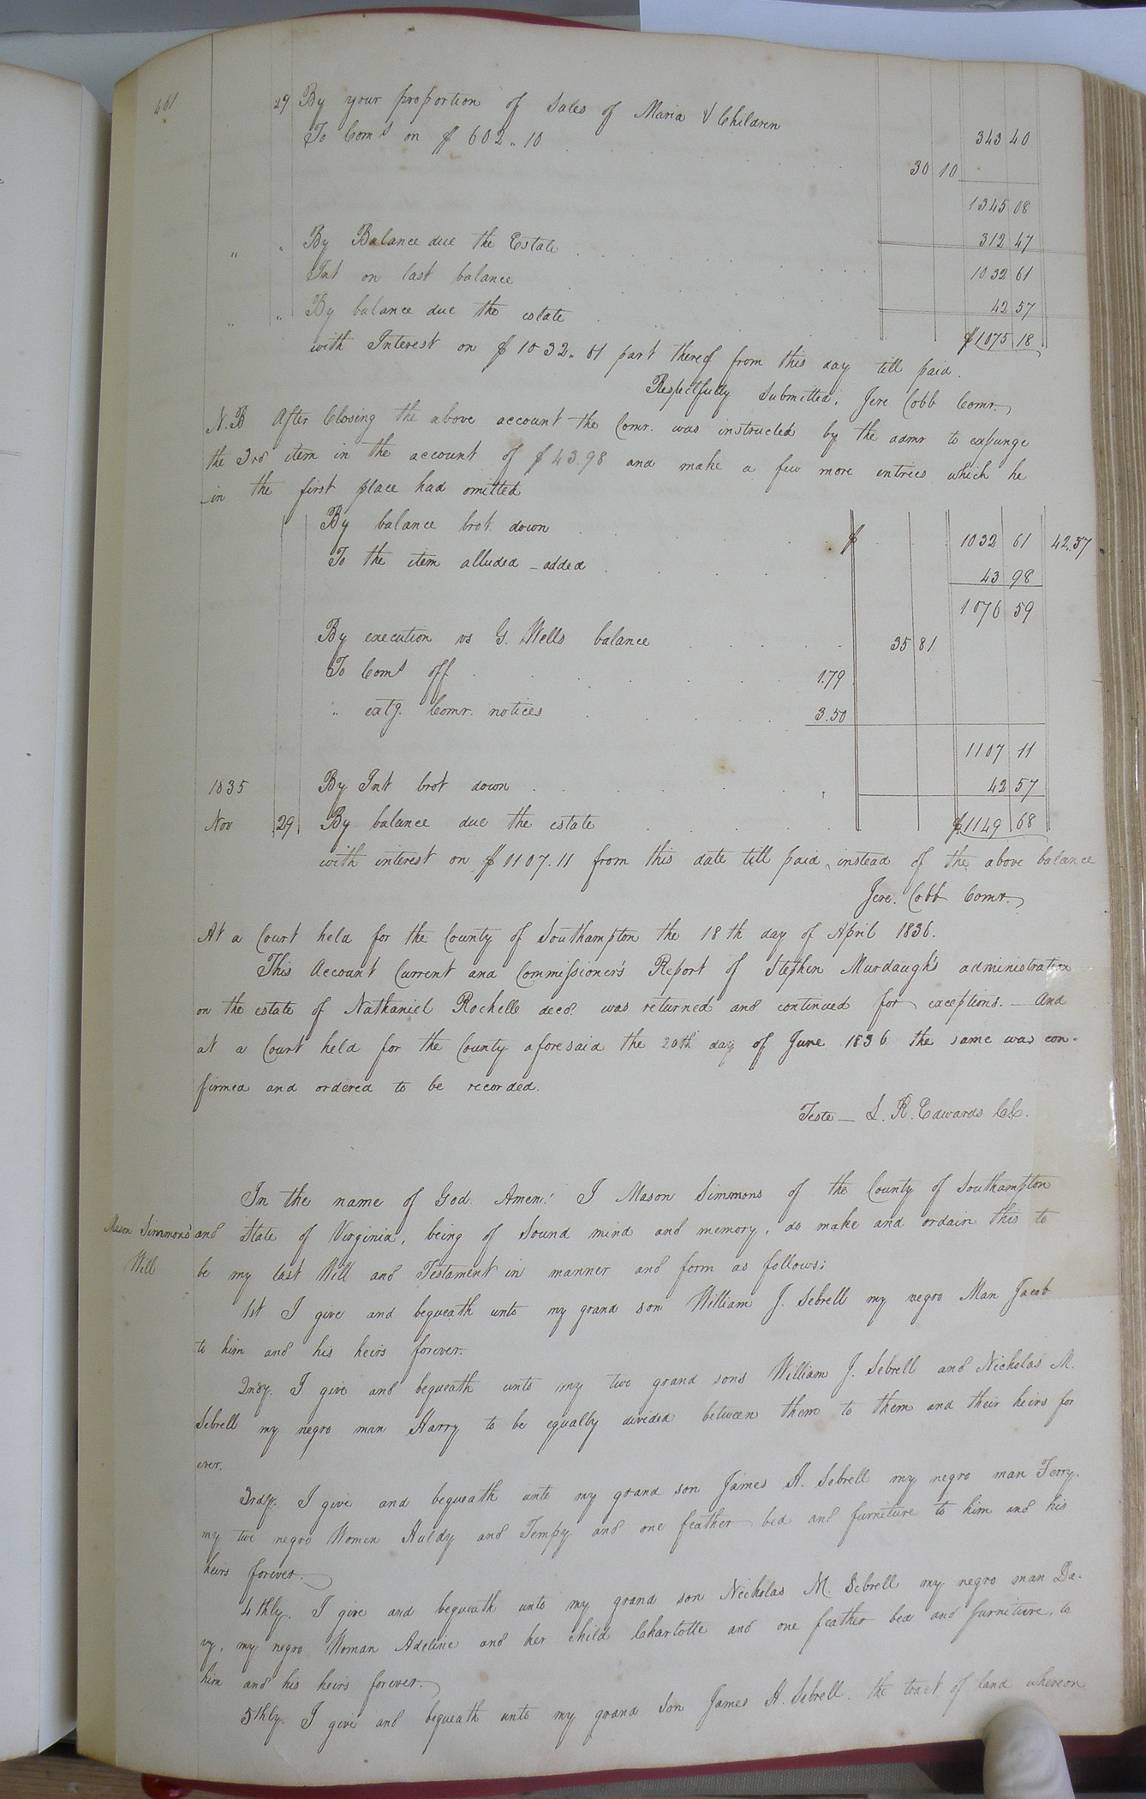 461
29 By your proportion of Sales of Maria & Children 343 40
To Coms on $602.10 30 10
1345 08
312 47
" " By Balance due the Estate 1032 61
Int on last balance 42 57
" " By balance due the estate $1075 18
with Interest on $1032.61 part thereof from this day till paid.
Respectfully Submitted, Jere Cobb Comr.
N.B After Closing the above account the Comr. was instructed by the admr to expunge
the 3rd item in the account of $43.98 and make a few more entries which he
in the first place had omitted
By balance brot down $ 1032 61 42.57
To the item alluded - added 43 98
1076 59
By execution vs G. Wells balance 35 81
To Coms off 1.79
" extg. Comr. notices 3.50
1107 11
1835 By Int brot down 42 57
Nov 29 By balance due the estate $1149 68
with interest on $1107.11 from this date till paid, instead of the above balance
Jere. Cobb Comr.
At a Court held for the County of Southampton the 18th day of April 1836.
This Account Current and Commissioner's Report of Stephen Murdaugh's administration
on the estate of Nathaniel Rochelle decd. was returned and continued for exceptions. - And
at a Court held for the County aforesaid the 20th day of June 1836 the same was con-
firmed and ordered to be recorded.
Teste - L. R. Edwards CC.
In the name of God. Amen! I Mason Simmons of the County of Southampton
Mason Simmons' and State of Virginia, being of Sound mind and memory, do make and ordain this to
Will be my last Will and Testament in manner and form as follows;
1st I give and bequeath unto my grand son William J. Sebrell my negro Man Jacob
to him and his heirs forever.
2ndy. I give and bequeath unto my two grand sons William J. Sebrell and Nicholas M.
Sebrell my negro man Harry to be equally divided between them to them and their heirs for
ever.
3rdy. I give and bequeath unto my grand son James A. Sebrell my negro man Terry.
my two negro Women Huldy and Tempy and one feather bed and furniture to him and his
heirs forever.
4thly. I give and bequeath unto my grand son Nicholas M. Sebrell my negro man Da-
vy, my negro Woman Adeline and her child Caharlotte and one feather bed and furniture, to
him and his heirs forever.
5thly. I give and bequeath unto my grand Son James A. Sebrell. the tract of land whereon